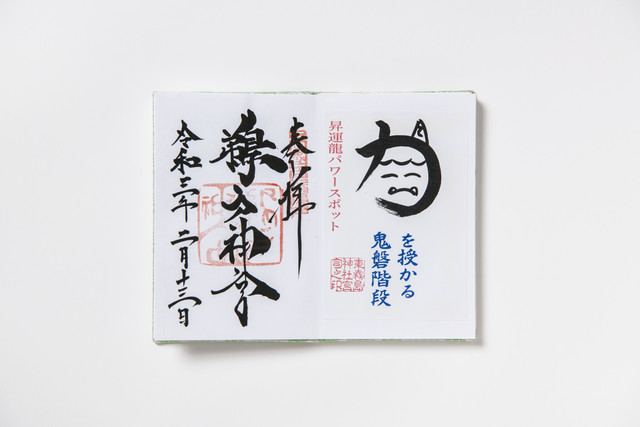 力
を授かる
鬼磐階段
昇運龍パワースポット
東霧島
神社宮
司之印
奉拝
鵜戸神宮
令和三年二月十三日